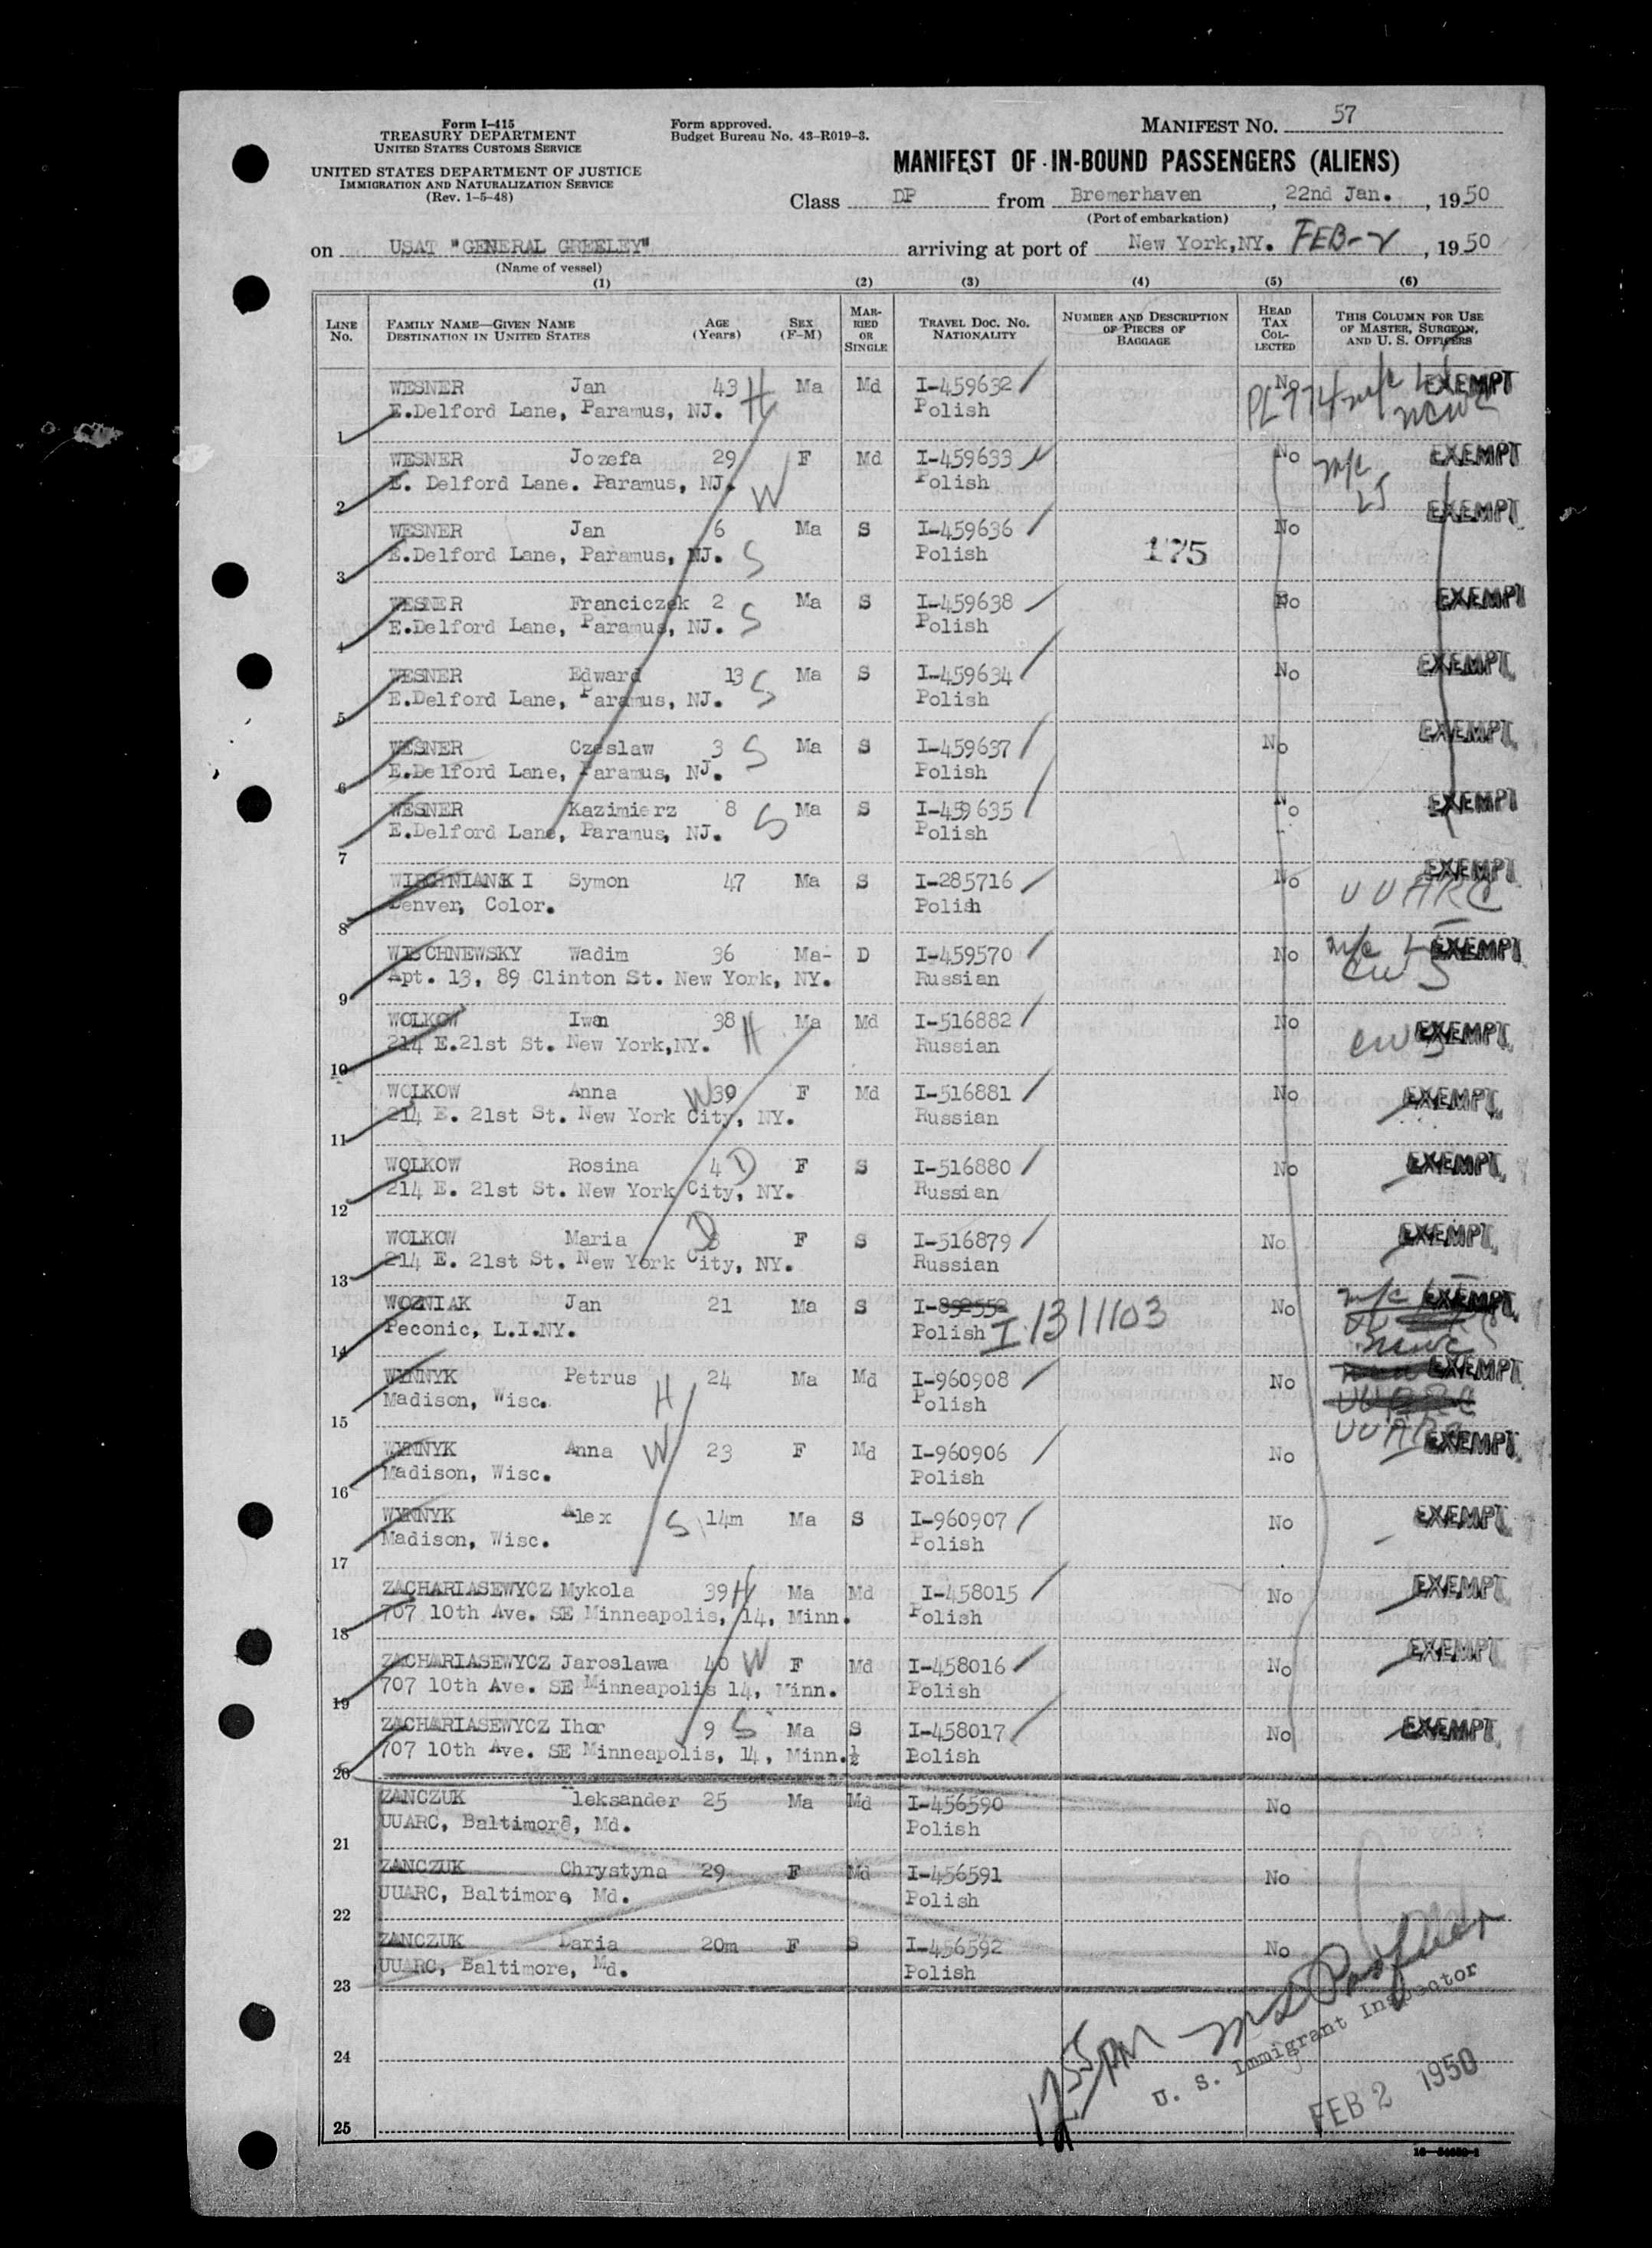 Form I-415
TREASURY DEPARTMENT
UNITED STATES CUSTOMS SERVICE
UNITED STATES DEPARTMENT OF JUSTICE
IMMIGRATION AND NATURALIZATION SERVICE
(Rev. 1-5-48)
Form approved.
Budget Bureau No. 43-R019-3.
MANIFEST NO. 57
MANIFEST OF IN-BOUND PASSENGERS (ALIENS)
Class DP from Bremerhaven, 22nd Jan., 1950
(Port of embarkation)
on USAT "GENERAL GREELEY" arriving at port of New York,NY. FEB-2, 1950
(Name of vessel)
(1) (2) (3) (4) (5) (6)
LINE NO. FAMILY NAME—GIVEN NAME DESTINATION IN UNITED STATES AGE (Years) SEX (F-M) MARRIED OR SINGLE TRAVEL DOC. NO. NATIONALITY NUMBER AND DESCRIPTION OF PIECES OF BAGGAGE HEAD TAX COLLECTED THIS COLUMN FOR USE OF MASTER, SURGEON, AND U. S. OFFICERS
WESNER Jan 43 H Ma Md I-459632 No EXEMPT
1 E.Delford Lane, Paramus, NJ. Polish
WESNER Jozefa 29 F Md I-459633 No EXEMPT
2 E. Delford Lane. Paramus, NJ. W Polish
WESNER Jan 6 Ma S I-459636 No EXEMPT
3 E.Delford Lane, Paramus, NJ. S Polish 175
WESNER Franciczek 2 Ma S I-459638 No EXEMPT
4 E.Delford Lane, Paramus, NJ. S Polish
WESNER Edward 13 S Ma S I-459634 No EXEMPT
5 E.Delford Lane, Paramus, NJ. Polish
WESNER Czeslaw 3 S Ma S I-459637 No EXEMPT
6 E.Delford Lane, Paramus, NJ. Polish
WESNER Kazimierz 8 S Ma S I-459635 No EXEMPT
7 E.Delford Lane, Paramus, NJ. Polish
Symon 47 Ma S I-285716 No EXEMPT
8 Denver, Color. Polish UUARC
WISCHNEWSKY Wadim 36 Ma- D I-459570 No EXEMPT
9 Apt. 13, 89 Clinton St. New York, NY. Russian CWS
WOLKOW Iwan 38 H Ma Md I-516882 No EXEMPT
10 214 E.21st St. New York,NY. Russian CWS
WOLKOW Anna W 39 F Md I-516881 No EXEMPT
11 214 E. 21st St. New York City, NY. Russian
WOLKOW Rosina 4 D F S I-516880 No EXEMPT
12 214 E. 21st St. New York City, NY. Russian
WOLKOW Maria D F S I-516879 No EXEMPT
13 214 E. 21st St. New York City, NY. Russian
WOZNIAK Jan 21 Ma S I-892552 No EXEMPT
14 Peconic, L.I.NY. Polish I-1311103 NCWC
WYNNYK Petrus 24 Ma Md I-960908 No EXEMPT
15 Madison, Wisc. H Polish UUARC
WYNNYK Anna W 23 F Md I-960906 No EXEMPT
16 Madison, Wisc. Polish
WYNNYK Alex S 14m Ma S I-960907 No EXEMPT
17 Madison, Wisc. Polish
ZACHARIASEWYCZ Mykola 39 H Ma Md I-458015 No EXEMPT
18 707 10th Ave. SE Minneapolis, 14, Minn. Polish
ZACHARIASEWYCZ Jaroslawa 40 W F Md I-458016 No EXEMPT
19 707 10th Ave. SE Minneapolis 14, Minn. Polish
ZACHARIASEWYCZ Ihor 9 S Ma S I-458017 No EXEMPT
20 707 10th Ave. SE Minneapolis, 14, Minn.½ Polish
ZANCZUK Aleksander 25 Ma Md I-456590 No
21 UUARC, Baltimore, Md. Polish
ZANCZUK Chrystyna 29 F Md I-456591 No
22 UUARC, Baltimore, Md. Polish
ZANCZUK Daria 20m F S I-456592 No
23 UUARC, Baltimore, Md. Polish
24
25
U. S. Immigrant Inspector
FEB 2 1950